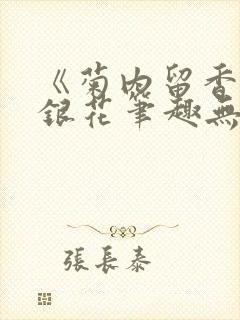 《菊内留香
銀花筆趣無
張長泰